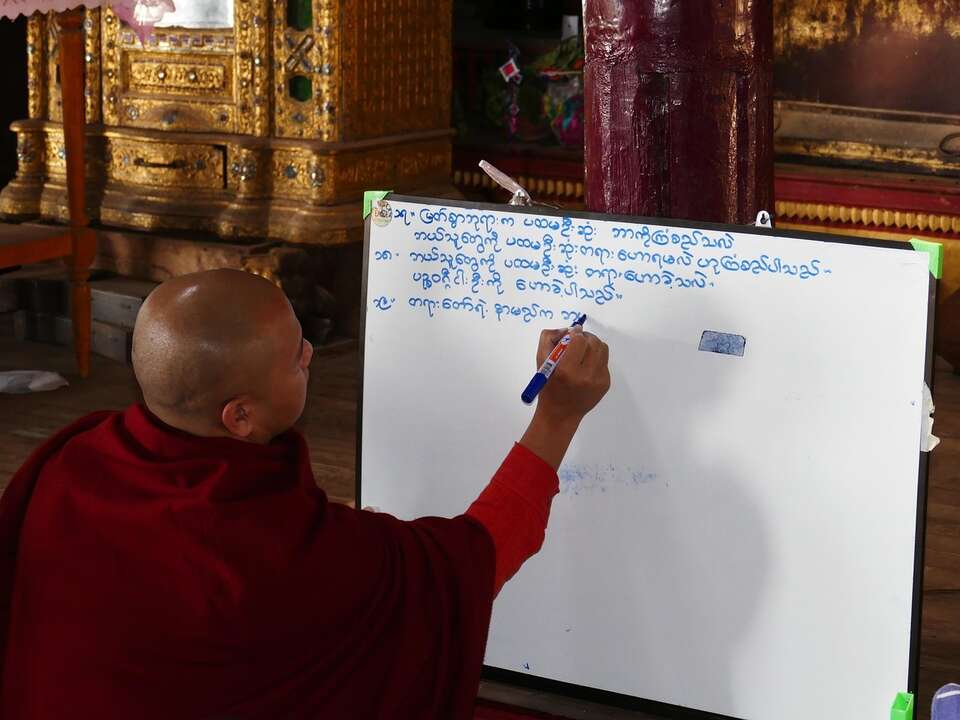 ၁၇။ မြတ်စွာဘုရားက ပထမဦးဆုံး ဘာကိုကြံစည်သလဲ
ဘယ်သူတွေကို ပထမဦးဆုံးတရားဟောရမလဲ ဟုကြံစည်ပါသည်။
၁၈။ ဘယ်သူတွေကို ပထမဦးဆုံး တရားဟောခဲ့သလဲ။
ပဉ္စဝဂ္ဂီငါးဦးကို ဟောခဲ့ပါသည်။
၁၉။ တရားတော်ရဲ့ နာမည်က